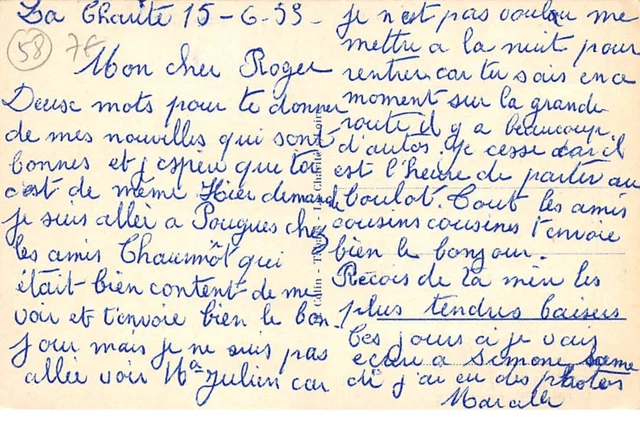 La Charité 15-6-59-
58
7€
Mon cher Roger
Deuse mots pour te donner
de mes nouvelles qui sont
bonnes et j'espère que toi
c'est de même Hier dimanche
je suis allée a Pougues chez
les amis Chaumôt qui
était bien content de me
voir et t'envoie bien le bon
jour mais je ne suis pas
allée voir Julien car
je n'est pas voulou me
mettre a la nuit pour
rentrer car tu sais en ce
moment sur la grande
route il y a beaucoup
d'autos. Je cesse car il
est l'heure de partir au
boulot. Tout les amis
cousins cousines t'envoie
bien le bonjour.
Reçois de la mien les
plus tendres baisers
Ces jours ci je vais
écrire a Simone
di j'ai eu des photos
La Charité